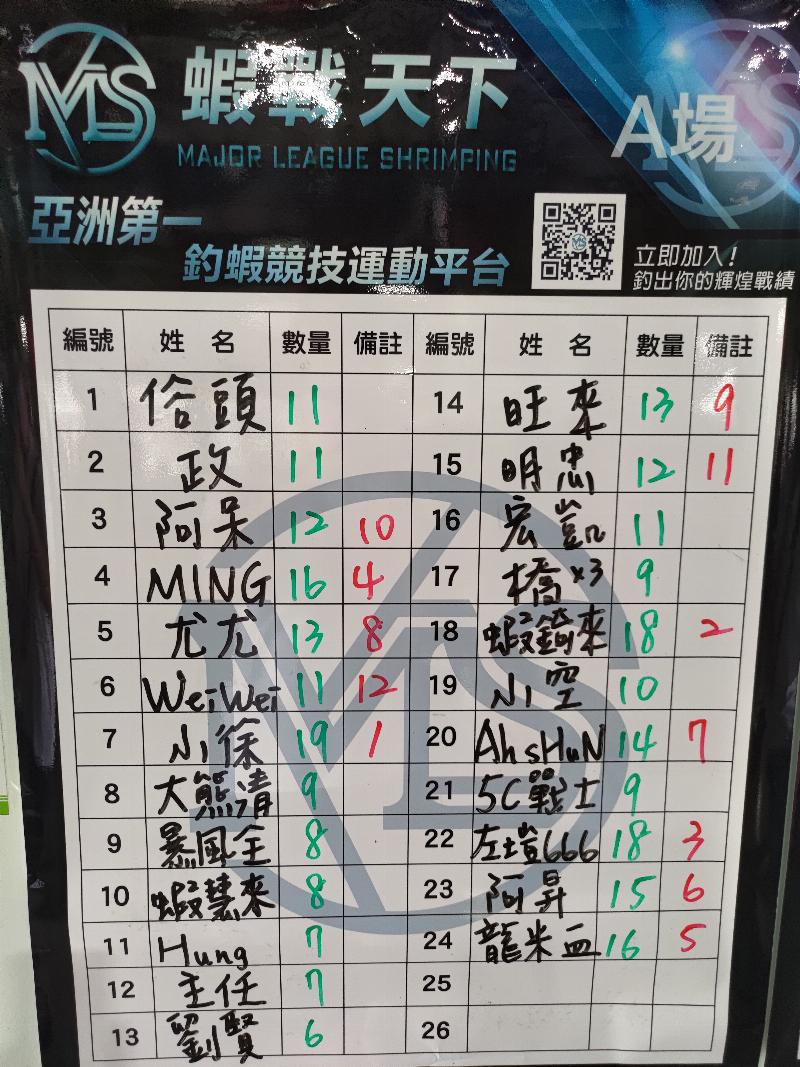 MLS
蝦戰天下
MAJOR LEAGUE SHRIMPING
A場
亞洲第一
釣蝦競技運動平台
立即加入!
釣出你的輝煌戰績
編號 姓 名 數量 備註 編號 姓 名 數量 備註
1 俗頭 11 14 旺來 13 9
2 政 11 15 明忠 12 11
3 阿呆 12 10 16 宏凱 11
4 MING 16 4 17 橋x3 9
5 尤尤 13 8 18 蝦2錡來 18 2
6 WeiWei 11 12 19 小空 10
7 小徐 19 1 20 AhsHuN 14 7
8 大熊清 9 21 5C戰士 9
9 暴風全 8 22 左塏666 18 3
10 蝦2慧來 8 23 阿昇 15 6
11 Hung 7 24 龍米血 16 5
12 主任 7 25
13 劉賢 6 26